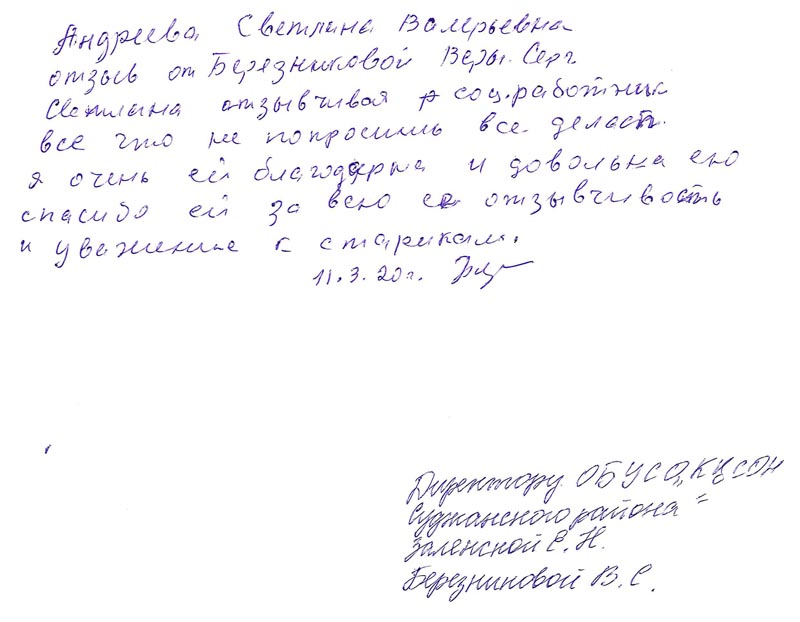 Андреева Светлина Валерьевна
отзыв от Березниковой Веры. Серг
Светлина отзывчивая соц.работник
все что не попросишь все делает.
я очень ей благодарна и довольна ею
спасибо ей за всю её отзывчивость
и уважение к старикам.
11.3.20г.
Директору ОБУСО "КЦСОН
Суджанского района"
Заленской Е.Н.
Березниковой В.С.